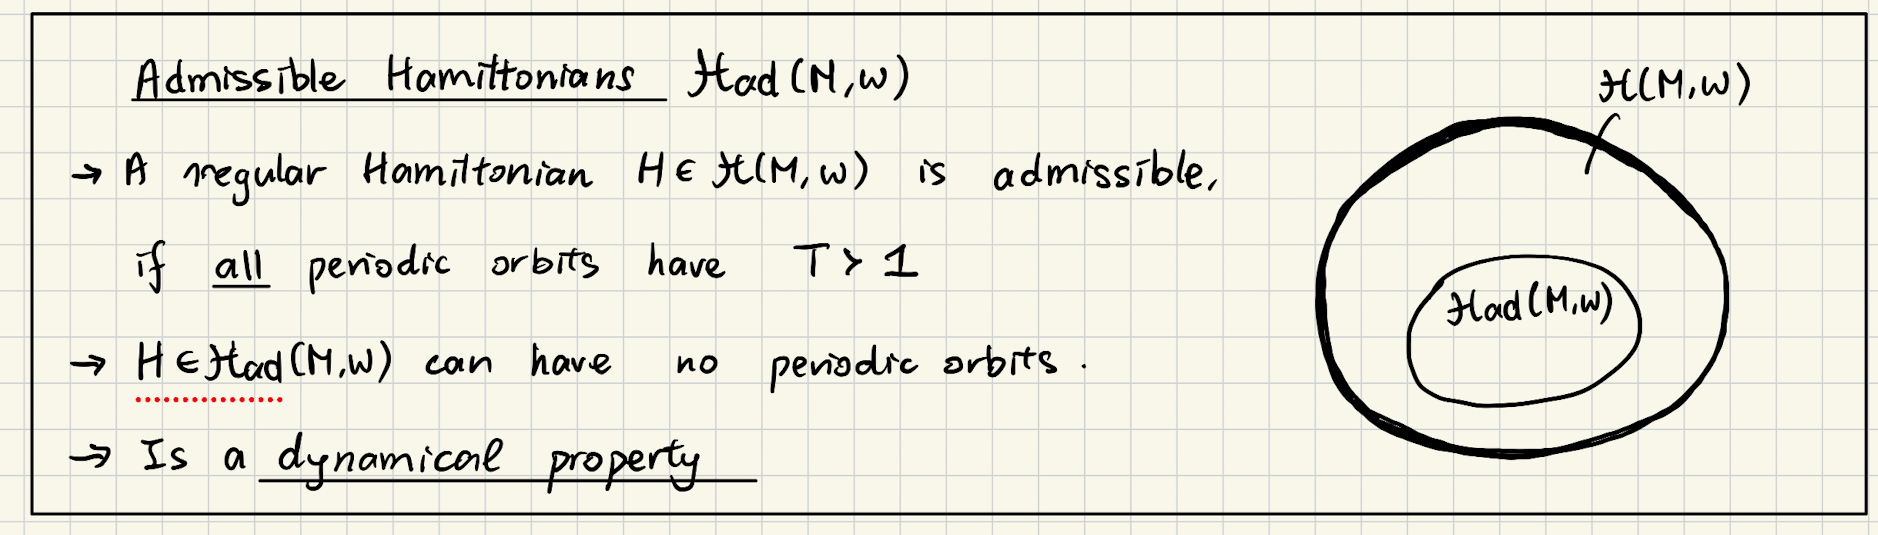 Admissible Hamiltonians ℋad(M,ω)
→ A regular Hamiltonian H ∈ ℋ(M,ω) is admissible,
if all periodic orbits have T > 1
→ H ∈ ℋad(M,ω) can have no periodic orbits.
→ Is a dynamical property
ℋ(M,ω)
ℋad(M,ω)